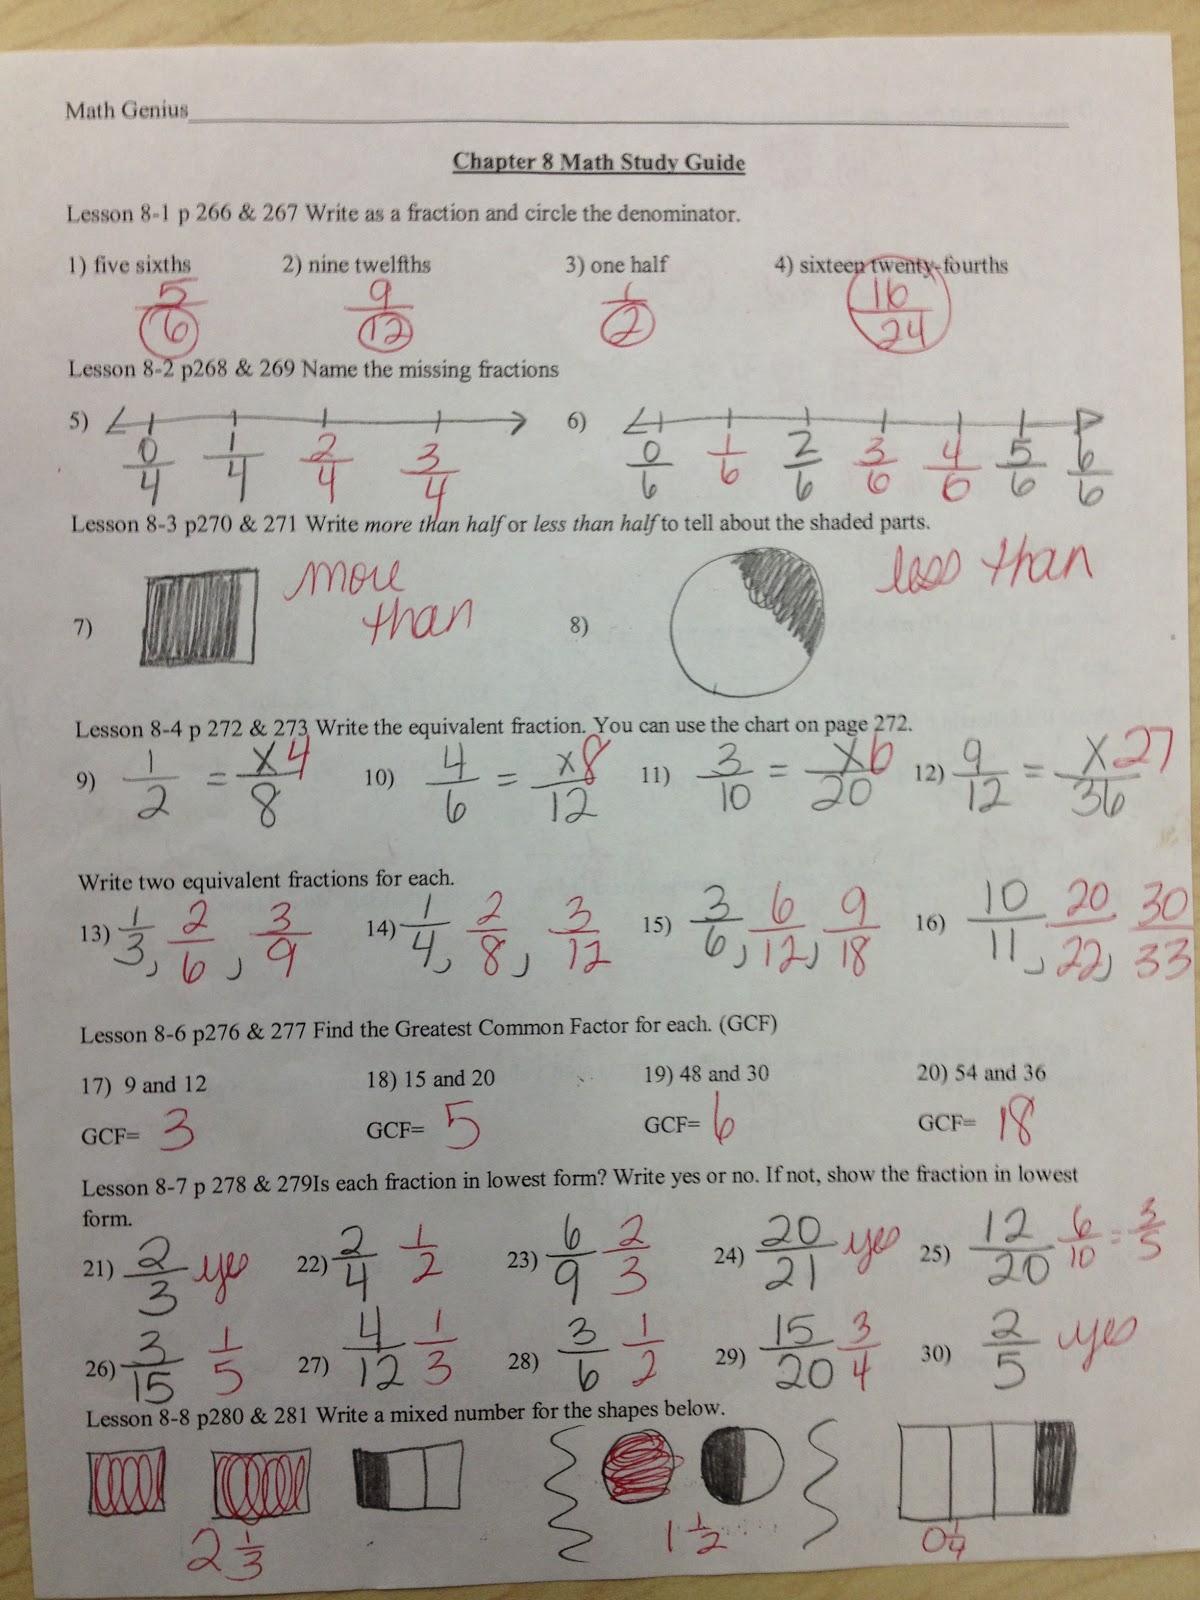 Math Genius
Chapter 8 Math Study Guide
Lesson 8-1 p 266 & 267 Write as a fraction and circle the denominator.
1) five sixths 2) nine twelfths 3) one half 4) sixteen twenty-fourths
5/6 9/12 1/2 16/24
Lesson 8-2 p268 & 269 Name the missing fractions
5) 6)
0/4 1/4 2/4 3/4 0/6 1/6 2/6 3/6 4/6 5/6 6/6
Lesson 8-3 p270 & 271 Write more than half or less than half to tell about the shaded parts.
7) more than 8) less than
Lesson 8-4 p 272 & 273 Write the equivalent fraction. You can use the chart on page 272.
9) 1/2 = x4/8 10) 4/6 = x8/12 11) 3/10 = x6/20 12) 9/12 = x27/36
Write two equivalent fractions for each.
13) 1/3, 2/6, 3/9 14) 1/4, 2/8, 3/12 15) 3/6, 6/12, 9/18 16) 10/11, 20/22, 30/33
Lesson 8-6 p276 & 277 Find the Greatest Common Factor for each. (GCF)
17) 9 and 12 18) 15 and 20 19) 48 and 30 20) 54 and 36
GCF= 3 GCF= 5 GCF= 6 GCF= 18
Lesson 8-7 p 278 & 279Is each fraction in lowest form? Write yes or no. If not, show the fraction in lowest
form.
21) 2/3 yes 22) 2/4 1/2 23) 6/9 2/3 24) 20/21 yes 25) 12/20 6/10 = 3/5
26) 3/15 1/5 27) 4/12 1/3 28) 3/6 1/2 29) 15/20 3/4 30) 2/5 yes
Lesson 8-8 p280 & 281 Write a mixed number for the shapes below.
2 1/3 1 1/2 0 1/4